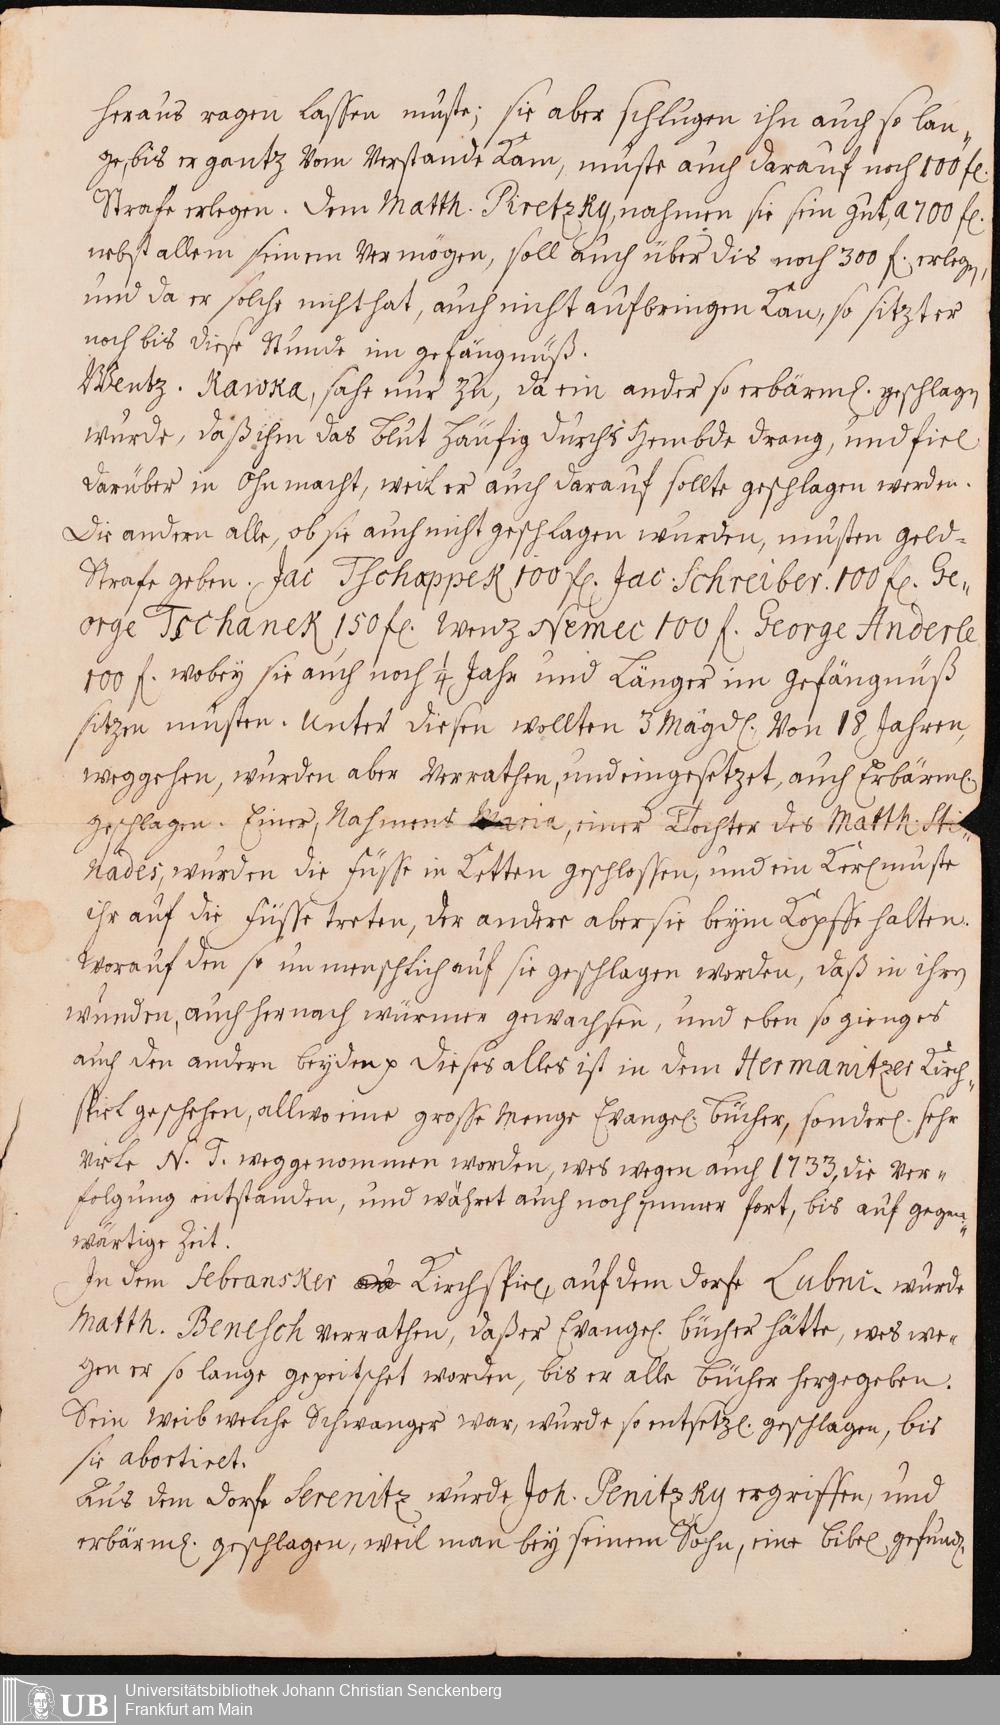 heraus ragen lassen muste; sie aber schlugen ihn auch so lan„
ge, bis er gantz Vom Verstande Kam, muste auch darauf noch 100 fl.
Strafe erlegen. Dem Matth. Piretzky, nahmen sie sein gut, a 700 fl.
nebst allem seinem Vermögen, soll auch über dis noch 300 f. erlegen,
und da er solche nicht hat, auch nicht aufbringen Kan, so sitzt er
noch bis diese Stunde im gefängnüß.
Wentz. Kawka, sahe nur zu, da ein ander so erbärml. geschlagen
wurde, daß ihm das Blut häufig durchs Hembde drang, und fiel
darüber in Ohnmacht, weil er auch darauf sollte geschlagen werden.
Die andern alle, ob sie auch nicht geschlagen wurden, musten geld=
Strafe geben. Jac Tschappek 100 fl. Jac. Schreiber. 100 fl. Ge„
orge Tschanek 150 fl. Wenz Nemec 100 f. George Anderle
100 f. wobey sie auch noch 1/4 Jahr und Länger im Gefängnüß
sitzen musten. Unter diesen wollten 3 Mägdl. Von 18 Jahren,
weggehen, wurden aber Verrathen, und eingesetzet, auch Erbärml.
geschlagen. Einer, Nahmens Maria, einer Tochter des Matth. Sti„
nades, wurden die Füsse in Ketten geschlossen, und ein Kerl muste
ihr auf die Füsse treten, der andere aber sie beym Kopffe halten.
Worauf den so unmenschlich auf sie geschlagen worden, daß in ihren
wunden, auch hernach würmer gewachsen, und eben so gieng es
auch den andern beyden. Dieses alles ist in dem Hermanitzer Kirch„
spiel geschehen, allwo eine grosse Menge Evangel. Bücher, sonderl. sehr
viele N. T. weggenommen worden, wes wegen auch 1733, die Ver„
folgung entstanden, und währet auch noch immer fort, bis auf gegen„
wärtige Zeit.
In dem Sebransker Kirchspiel, auf dem Dorfe Lubni. wurde
Matth. Benesch verrathen, daß er Evangel. bücher hätte, wes we„
gen er so lange gepeitschet worden, bis er alle Bücher hergegeben.
Sein Weib welche Schwanger war, wurde so entsetzl. geschlagen, bis
sie abortiret.
Aus dem Dorfe Serenitz wurde Joh. Penitzky ergriffen, und
erbärml. geschlagen, weil man bey seinem Sohn, eine Bibel gefund.
UB Universitätsbibliothek Johann Christian Senckenberg
Frankfurt am Main